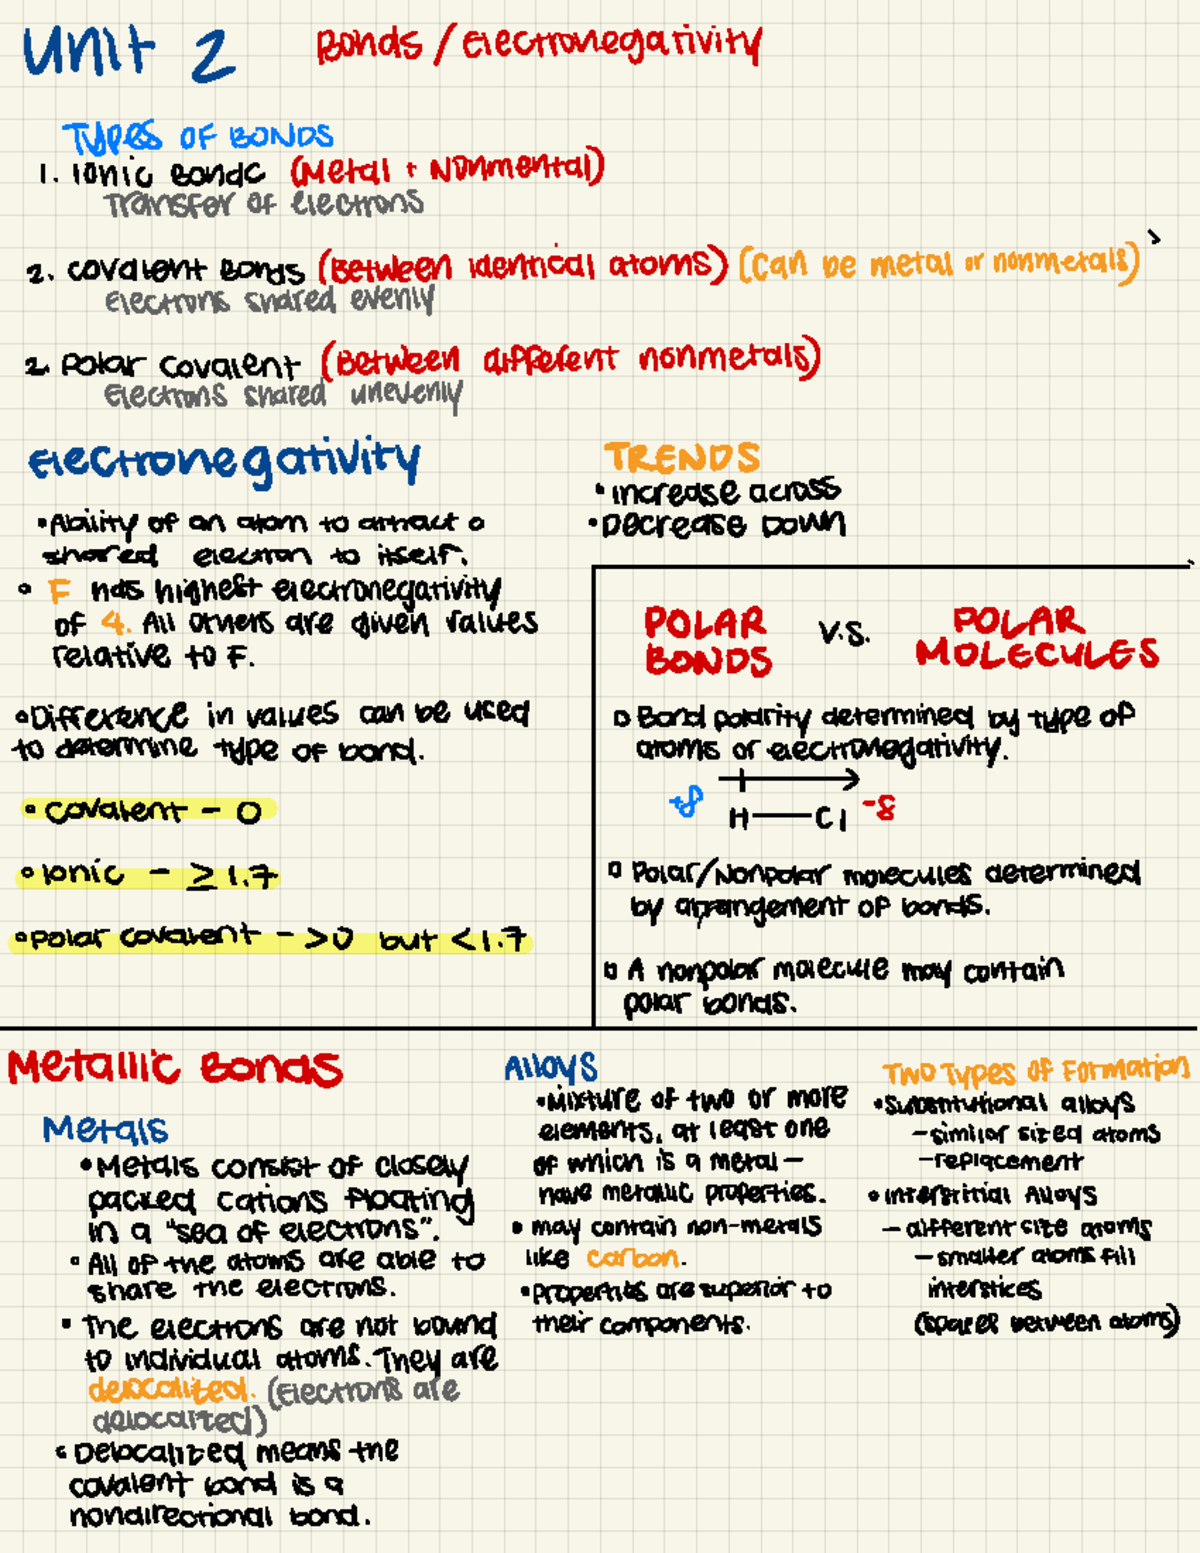 Unit 2 Bonds/Electronegativity
Types of Bonds
1. Ionic Bondc (Metal + Nonmental)
Transfer of electrons
2. Covalent Bonds (Between identical atoms) (can be metal or nonmetals)
Electrons shared evenly
2 Polar Covalent (Between different nonmetals)
Electrons shared unevenly
Electronegativity
•Ability of an atom to attract a
shared electron to itself.
• F has highest electronegativity
of 4. All others are given values
relative to F.
•Difference in values can be used
to determine type of bond.
•Covalent - 0
•Ionic - ≥ 1.7
•Polar covalent - >0 but <1.7
TRENDS
•increase across
•Decrease Down
POLAR BONDS V.S. POLAR MOLECULES
▫ Bond polarity determined by type of
atoms or electronegativity.
+δ H—Cl -δ
▫ Polar/Nonpolar molecules determined
by arrangement of bonds.
▫ A nonpolar molecule may contain
polar bonds.
Metallic Bonds
Metals
•Metals consist of closely
packed cations floating
in a "sea of electrons".
•All of the atoms are able to
share the electrons.
• The electrons are not bound
to individual atoms. They are
delocalized. (Electrons are
delocalized)
•Delocalized means the
covalent bond is a
nondirectional bond.
Alloys
•Mixture of two or more
elements, at least one
of which is a metal –
have metallic properties.
• may contain non-metals
like carbon.
•Properties are superior to
their components.
Two Types of Formation
•Substitutional alloys
-similar sized atoms
-replacement
•interstitial Alloys
- different size atoms
-smaller atoms fill
interstices
(spaces between atoms)